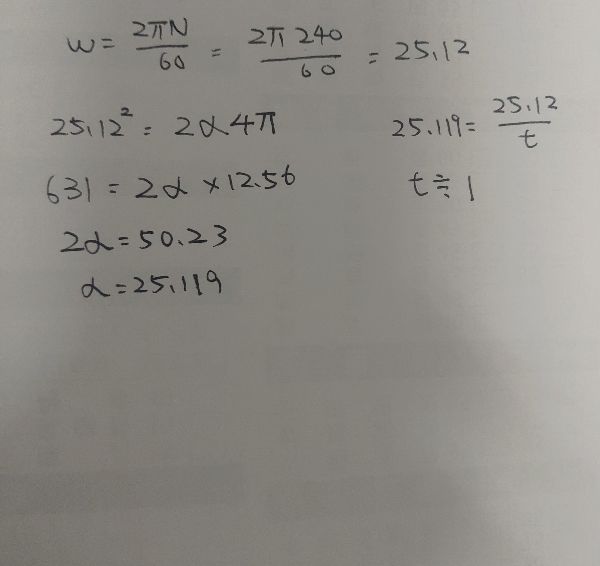 w = 2πN/60 = 2π 240/60 = 25.12
25.12² = 2α4π
631 = 2α × 12.56
2α = 50.23
α = 25.119
25.119 = 25.12/t
t ≒ 1